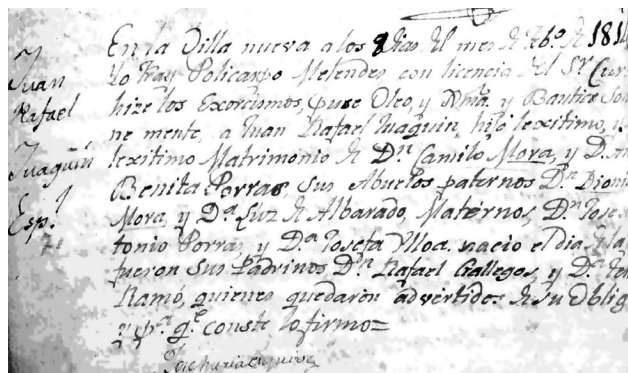 Juan
Rafael
Juaquin
Esp.l
En la Villa nueva a los 8 Dias del mes de Feb.o de 181
Yo Fray Policarpo Melendes con licencia del S.r Cura
hize los Exorcismos, puse Oleo, y Xma. y Bautice Sole
ne mente, a Juan Rafael Juaquin, hijo lexitimo, y
lexitimo Matrimonio de D.n Camilo Mora, y D.
Benita Porras, Sus Abuelos paternos D.n Dioni
Mora, y D.a Luz de Albarado, Maternos, D.n Jose
tonio Porras, y D.a Josefa Ulloa. nacio el dia
fueron Sus Padrinos, D.n Rafael Gallegos, y D.a
Ramó, quienes quedaron advertidos de su Oblig
y p.a q.e conste lo firmo=